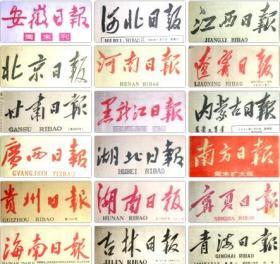 安徽日报
周末刊
河北日报
HEBEI RIBAO
江西日报
JIANGXI RIBAO
北京日报
河南日報
HENAN RIBAO
遼寧日報
LIAONING RIBAO
甘肃日報
GANSU RIBAO
黑龙江日报
内蒙古日報
廣西日報
GVANGJSIH YIZBAO
湖北日報
HUBEI RIBAO
南方日報
周末扩大版
贵州日報
GUIZHOU RIBAO
湖南日報
HUNAN RIBAO
宁夏日報
NINGXIA RIBAO
海南日報
吉林日报
JILIN RIBAO
青海日報
QINGHAI RIBAO